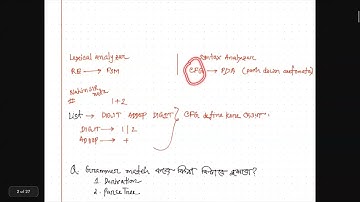 Lexical Analyzer
Syntax Analyzer
RE → FSM
CFG → PDA (push down automata)
1+2
List → DIGIT ADDOP DIGIT
CFG define kore
DIGIT → 1 | 2
ADDOP → +
Q Grammar match করে কিনা কিভাবে বুঝবো?
1. Derivation
2. Parse Tree
2 of 27